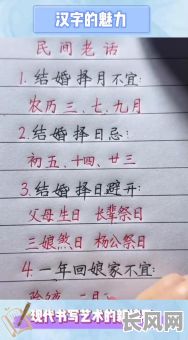 汉字的魅力
民间老话
1.结婚择月不宜:
农历三、七、九月
2.结婚择日忌:
初五、十四、廿三
3.结婚择日避开:
父母生日 长辈祭日
三娘煞日 杨公祭日
4.一年回娘家不宜:
现代书写艺术的
长风网